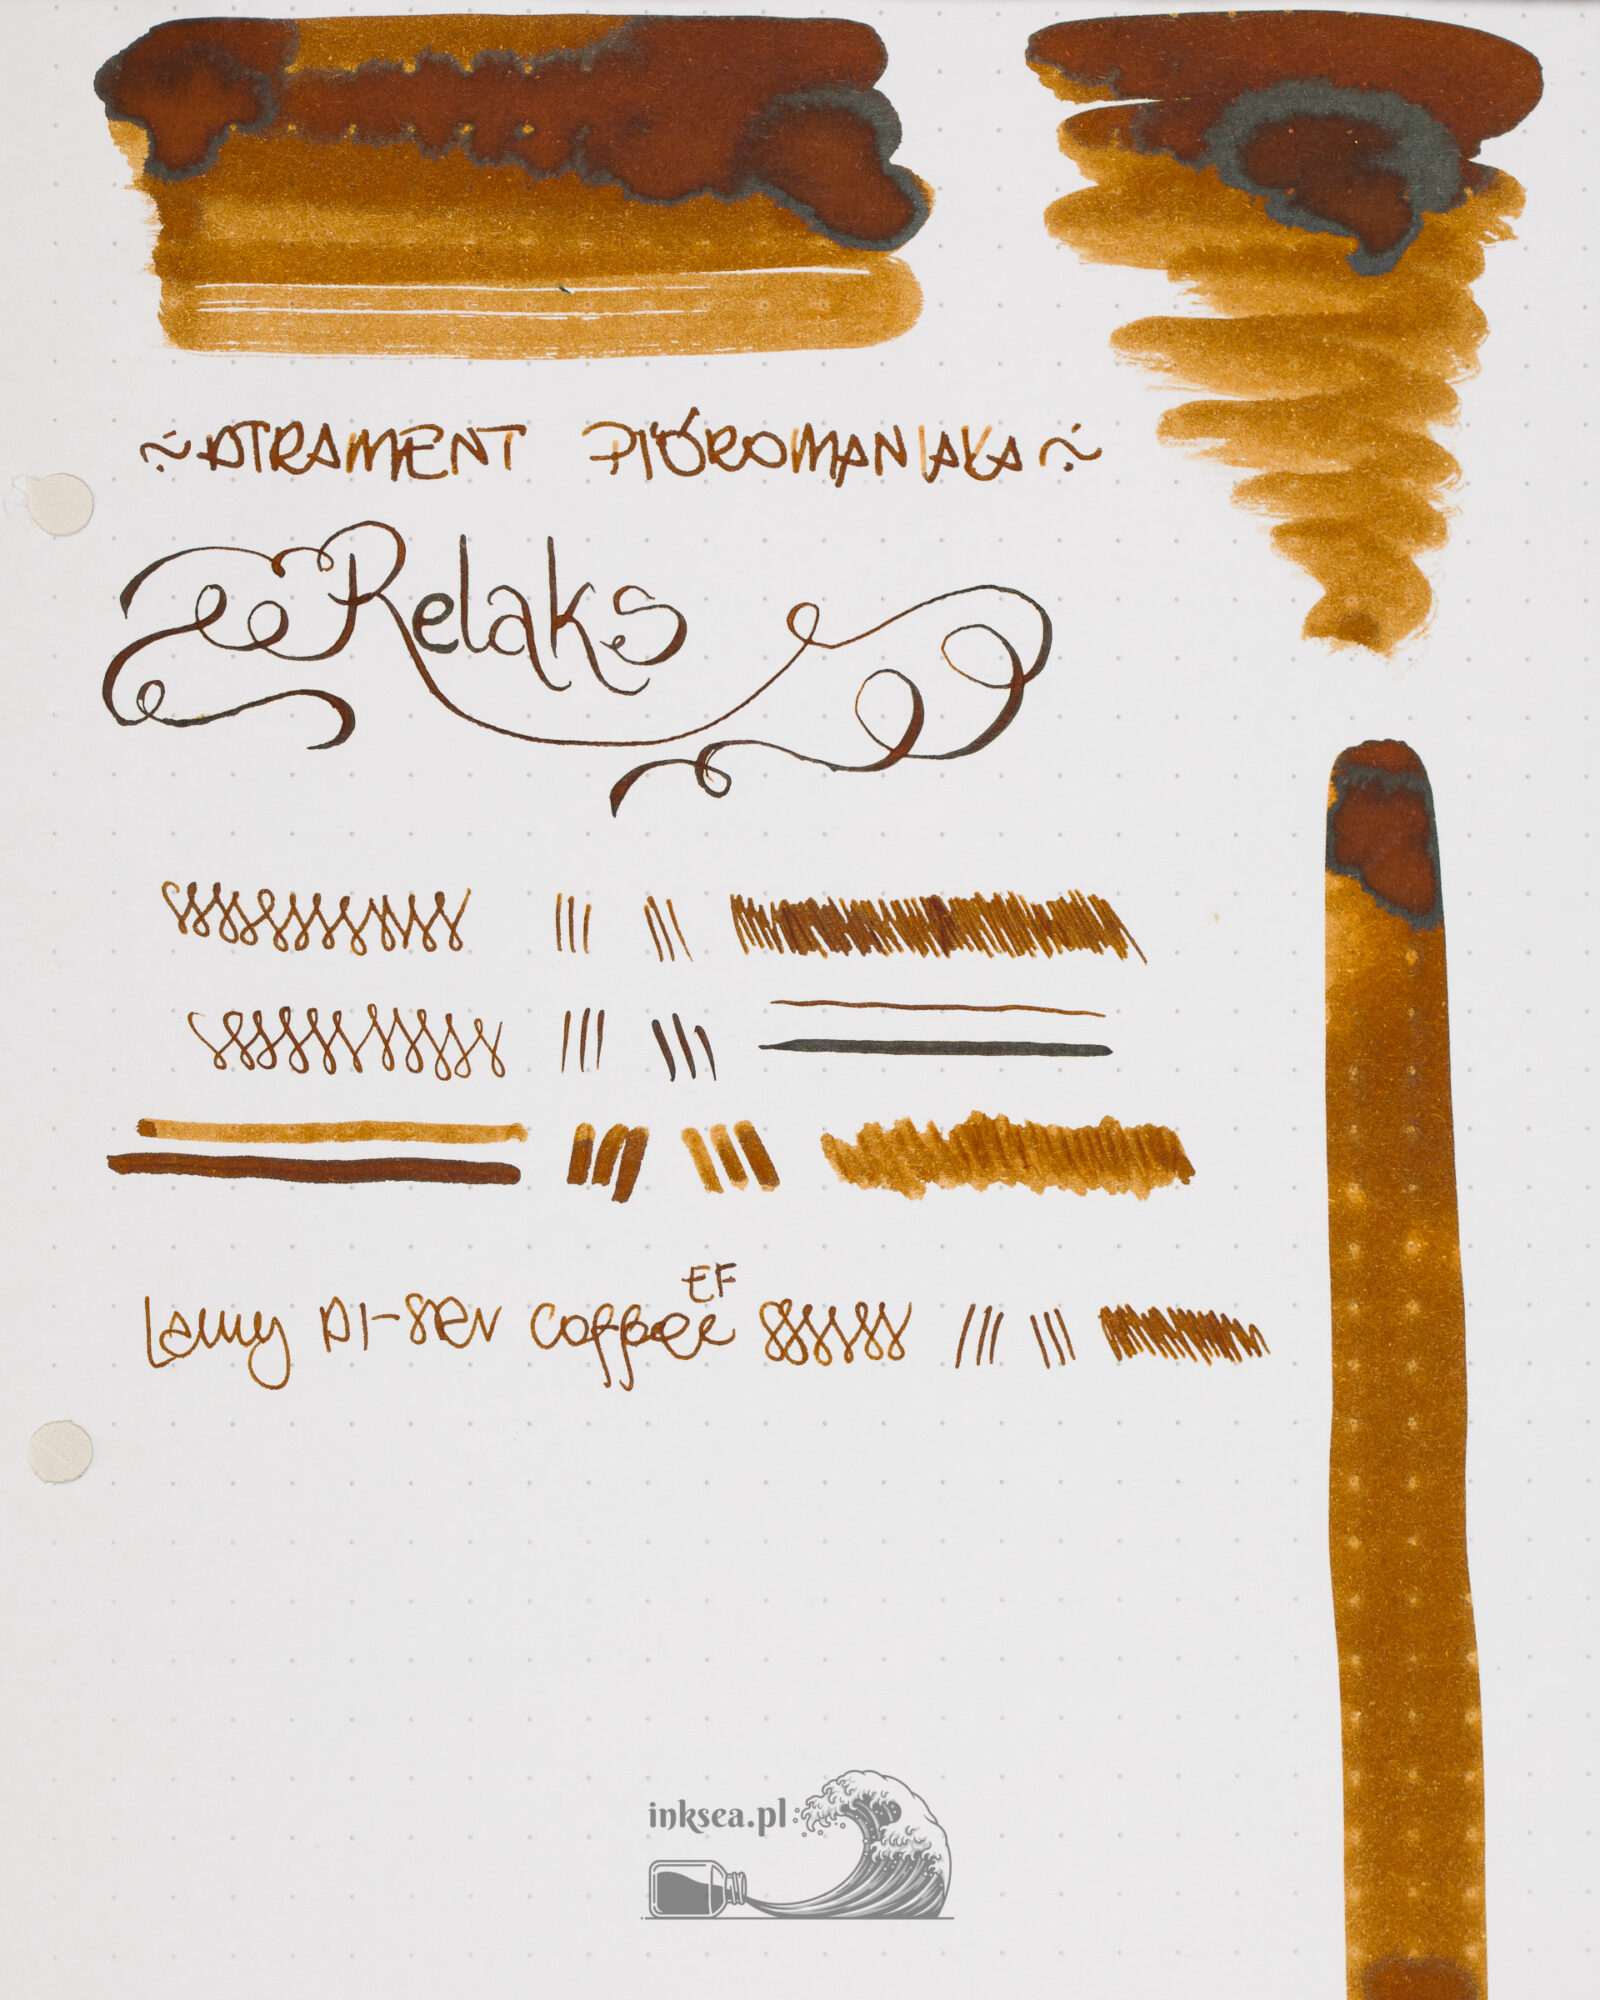 ~ ATRAMENT PIÓROMANIAKA ~
Relaks
EF
Lamy Al-Star Coffee
inksea.pl